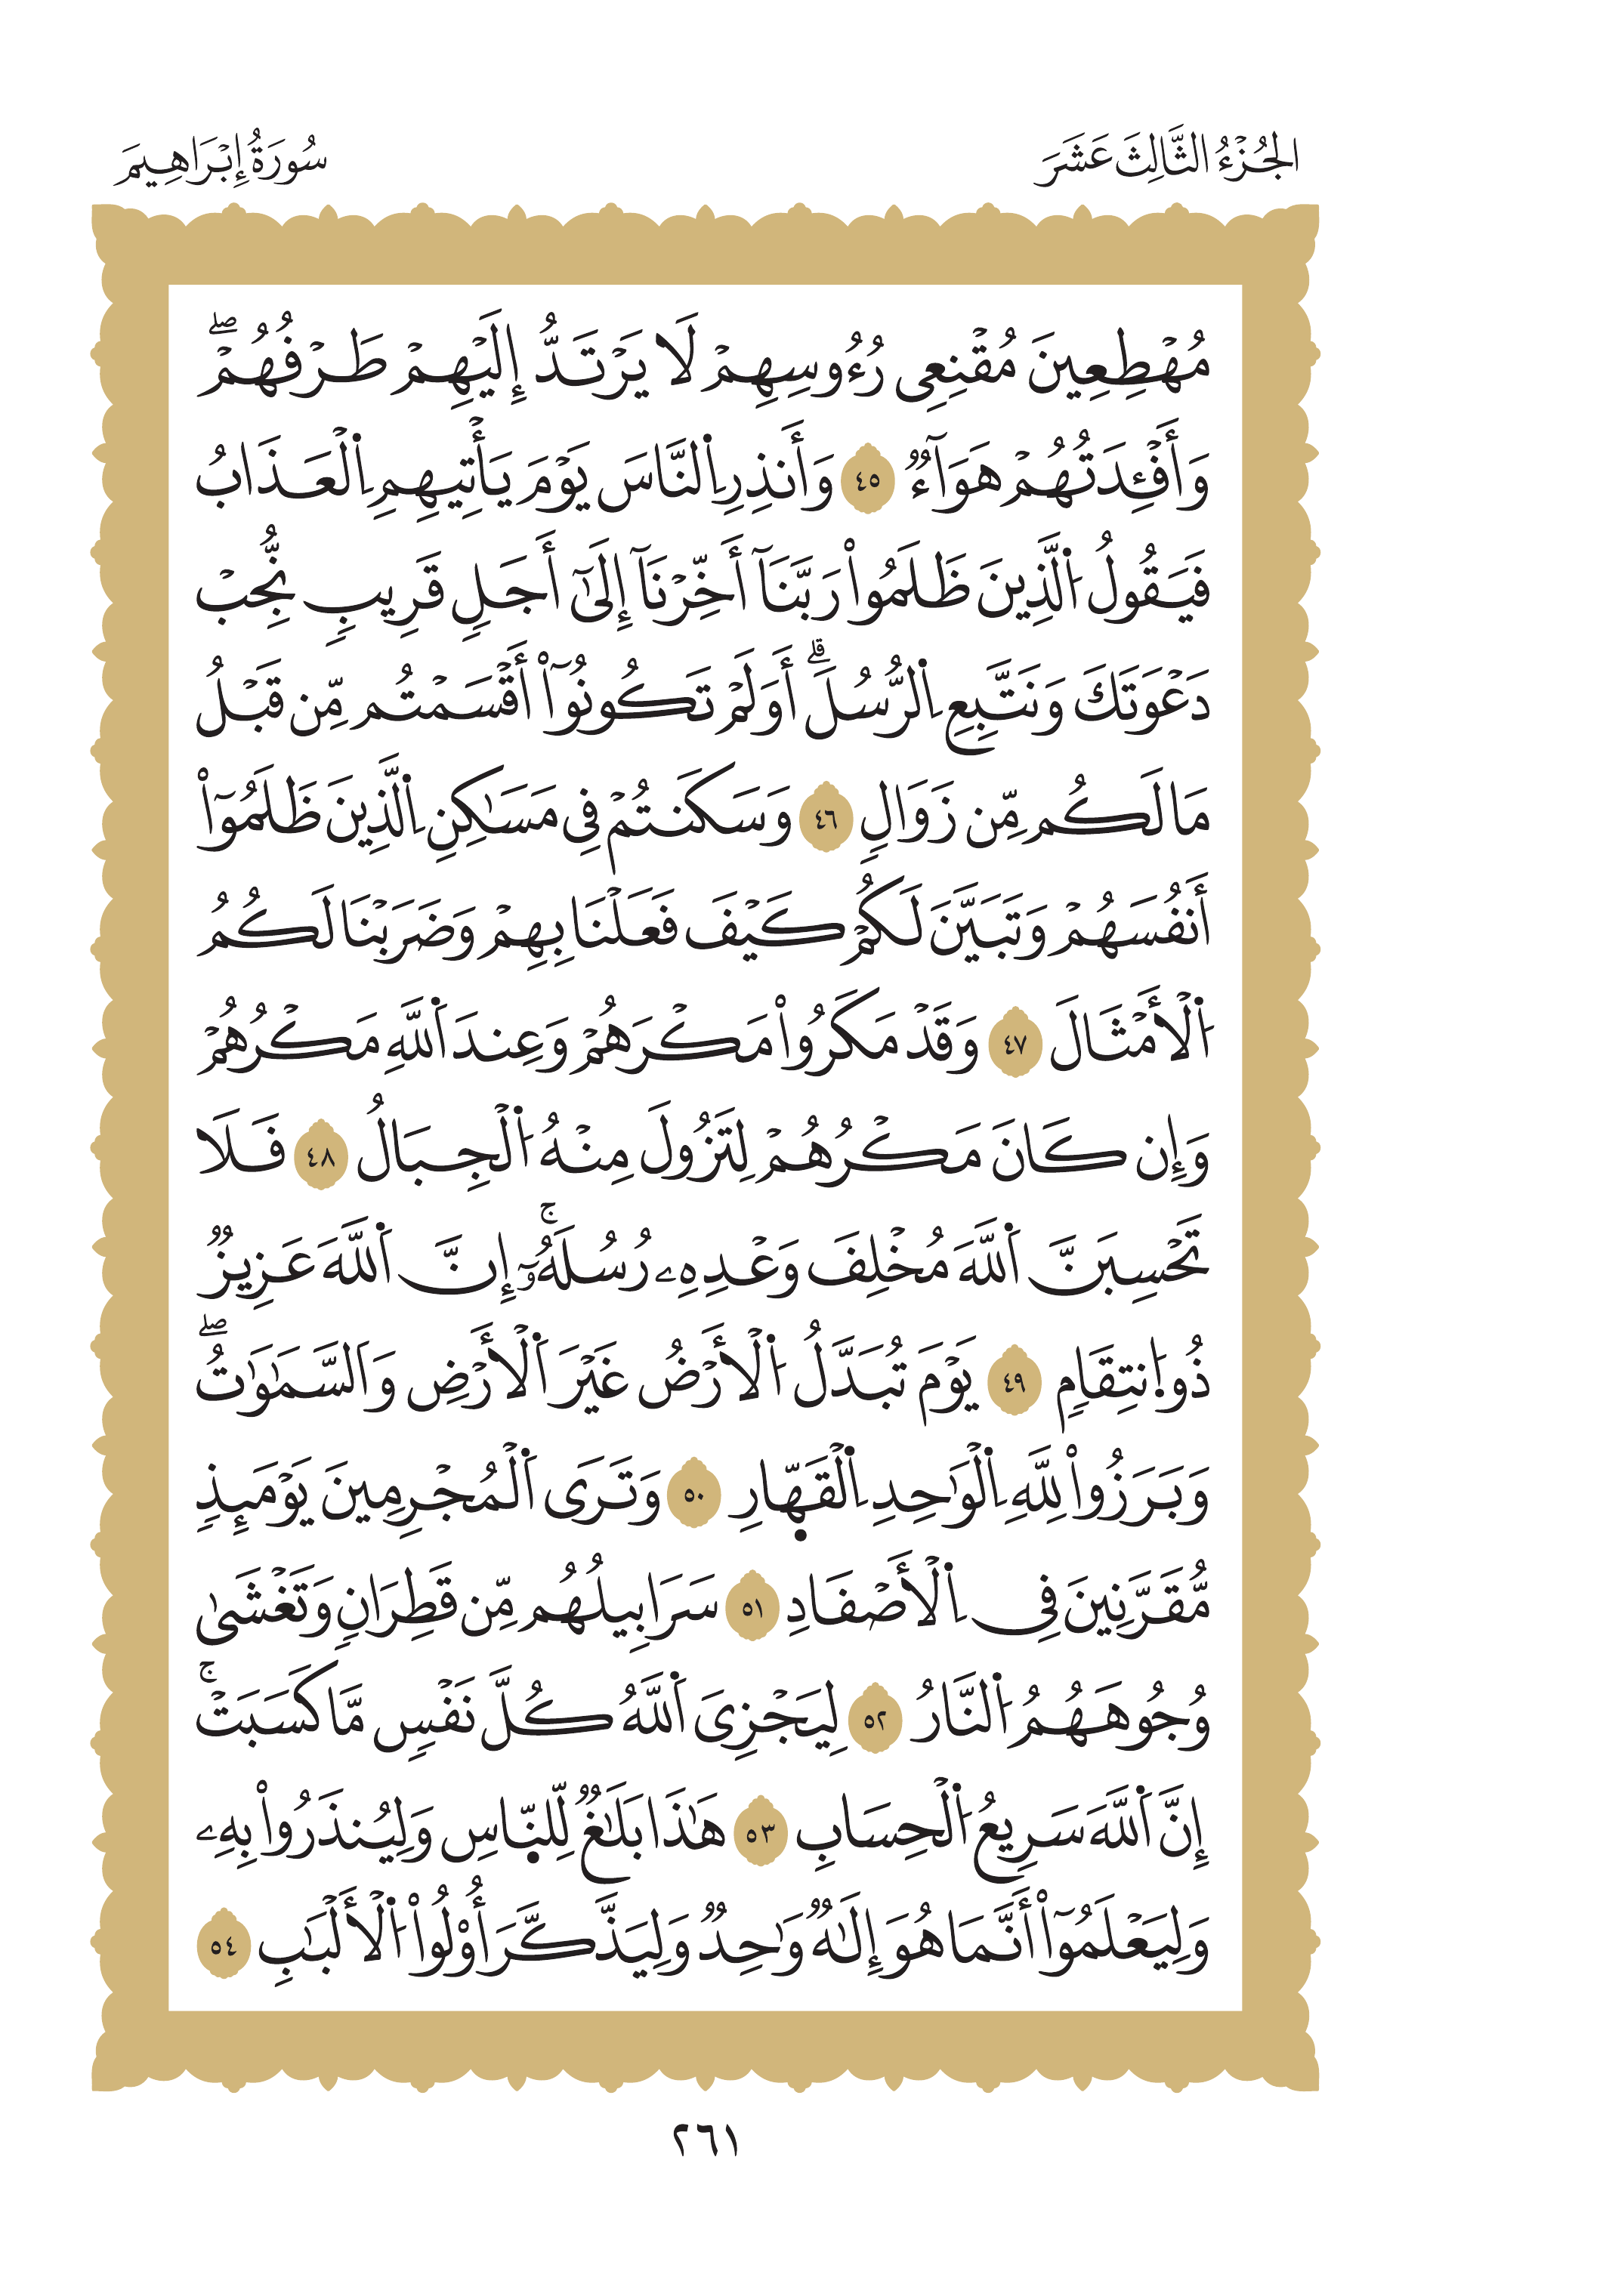 الجُزْءُ الثَّالِثَ عَشَرَ
سُورَةُ إِبْرَاهِيمَ
مُهْطِعِينَ مُقْنِعِى رُءُوسِهِمْ لَا يَرْتَدُّ إِلَيْهِمْ طَرْفُهُمْۖ
وَأَفْـِٔدَتُهُمْ هَوَآءٌ ٤٥ وَأَنذِرِ اِ۬لنَّاسَ يَوْمَ يَأْتِيهِمِ اِ۬لْعَذَابُ
فَيَقُولُ اُ۬لَّذِينَ ظَلَمُواْ رَبَّنَآ أَخِّرْنَآ إِلَىٰٓ أَجَلٖ قَرِيبٖ نُّجِبْ
دَعْوَتَكَ وَنَتَّبِعِ اِ۬لرُّسُلَۗ أَوَلَمْ تَكُونُوٓاْ أَقْسَمْتُم مِّن قَبْلُ
مَا لَكُم مِّن زَوَالٖ ٤٦ وَسَكَنتُمْ فِى مَسَٰكِنِ اِ۬لَّذِينَ ظَلَمُوٓاْ
أَنفُسَهُمْ وَتَبَيَّنَ لَكُمْ كَيْفَ فَعَلْنَا بِهِمْ وَضَرَبْنَا لَكُمُ
اُ۬لْأَمْثَالَ ٤٧ وَقَدْ مَكَرُواْ مَكْرَهُمْ وَعِندَ اَ۬للَّهِ مَكْرُهُمْ
وَإِن كَانَ مَكْرُهُمْ لِتَزُولَ مِنْهُ اُ۬لْجِبَالُ ٤٨ فَلَا
تَحْسِبَنَّ اَ۬للَّهَ مُخْلِفَ وَعْدِهِۦ رُسُلَهُۥٓۚ إِنَّ اَ۬للَّهَ عَزِيزٞ
ذُو اُ۪نتِقَامٖ ٤٩ يَوْمَ تُبَدَّلُ اُ۬لْأَرْضُ غَيْرَ اَ۬لْأَرْضِ وَالسَّمَٰوَٰتُۖ
وَبَرَزُواْ لِلَّهِ اِ۬لْوَٰحِدِ اِ۬لْقَهّ۪ارِ ٥٠ وَتَرَى اَ۬لْمُجْرِمِينَ يَوْمَئِذٖ
مُّقَرَّنِينَ فِى اِ۬لْأَصْفَادِ ٥١ سَرَابِيلُهُم مِّن قَطِرَانٖ وَتَغْشَىٰ
وُجُوهَهُمُ اُ۬لنَّارُ ٥٢ لِيَجْزِىَ اَ۬للَّهُ كُلَّ نَفْسٖ مَّا كَسَبَتْۚ
إِنَّ اَ۬للَّهَ سَرِيعُ اُ۬لْحِسَابِ ٥٣ هَٰذَا بَلَٰغٞ لِّلنّ۪اسِ وَلِيُنذَرُواْ بِهِۦ
وَلِيَعْلَمُوٓاْ أَنَّمَا هُوَ إِلَٰهٞ وَٰحِدٞ وَلِيَذَّكَّرَ أُوْلُواْ اُ۬لْأَلْبَٰبِ ٥٤
٢٦١